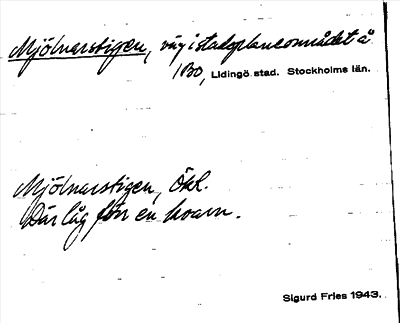 Mjölnarstigen, väg i stadsplaneområdet å
Bo, Lidingö stad. Stockholms län.
Mjölnarstigen, Ökl.
Där låg förr en kvarn.
Sigurd Fries 1943.